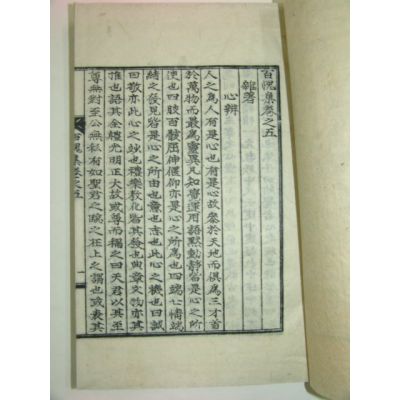 百愧集卷之五
雜著
心辨
人之爲人有是心也有是心故參於天地而俱爲三才首
於萬物而最爲靈異凡知覺運用語默動靜皆是心之所
使也四肢百骸屈伸偃仰亦是心之所爲也四端七情端
緖之發見皆是心之所由也意也志也此心之機也曰誠
曰敬亦此心之妙也禮樂敎化皆其發也典章文物亦其
推也語其全體光明正大故或尊而稱之曰天君以其至
尊無對至公無私有如聖君之之上之謂也或表其
百愧集卷之五
一